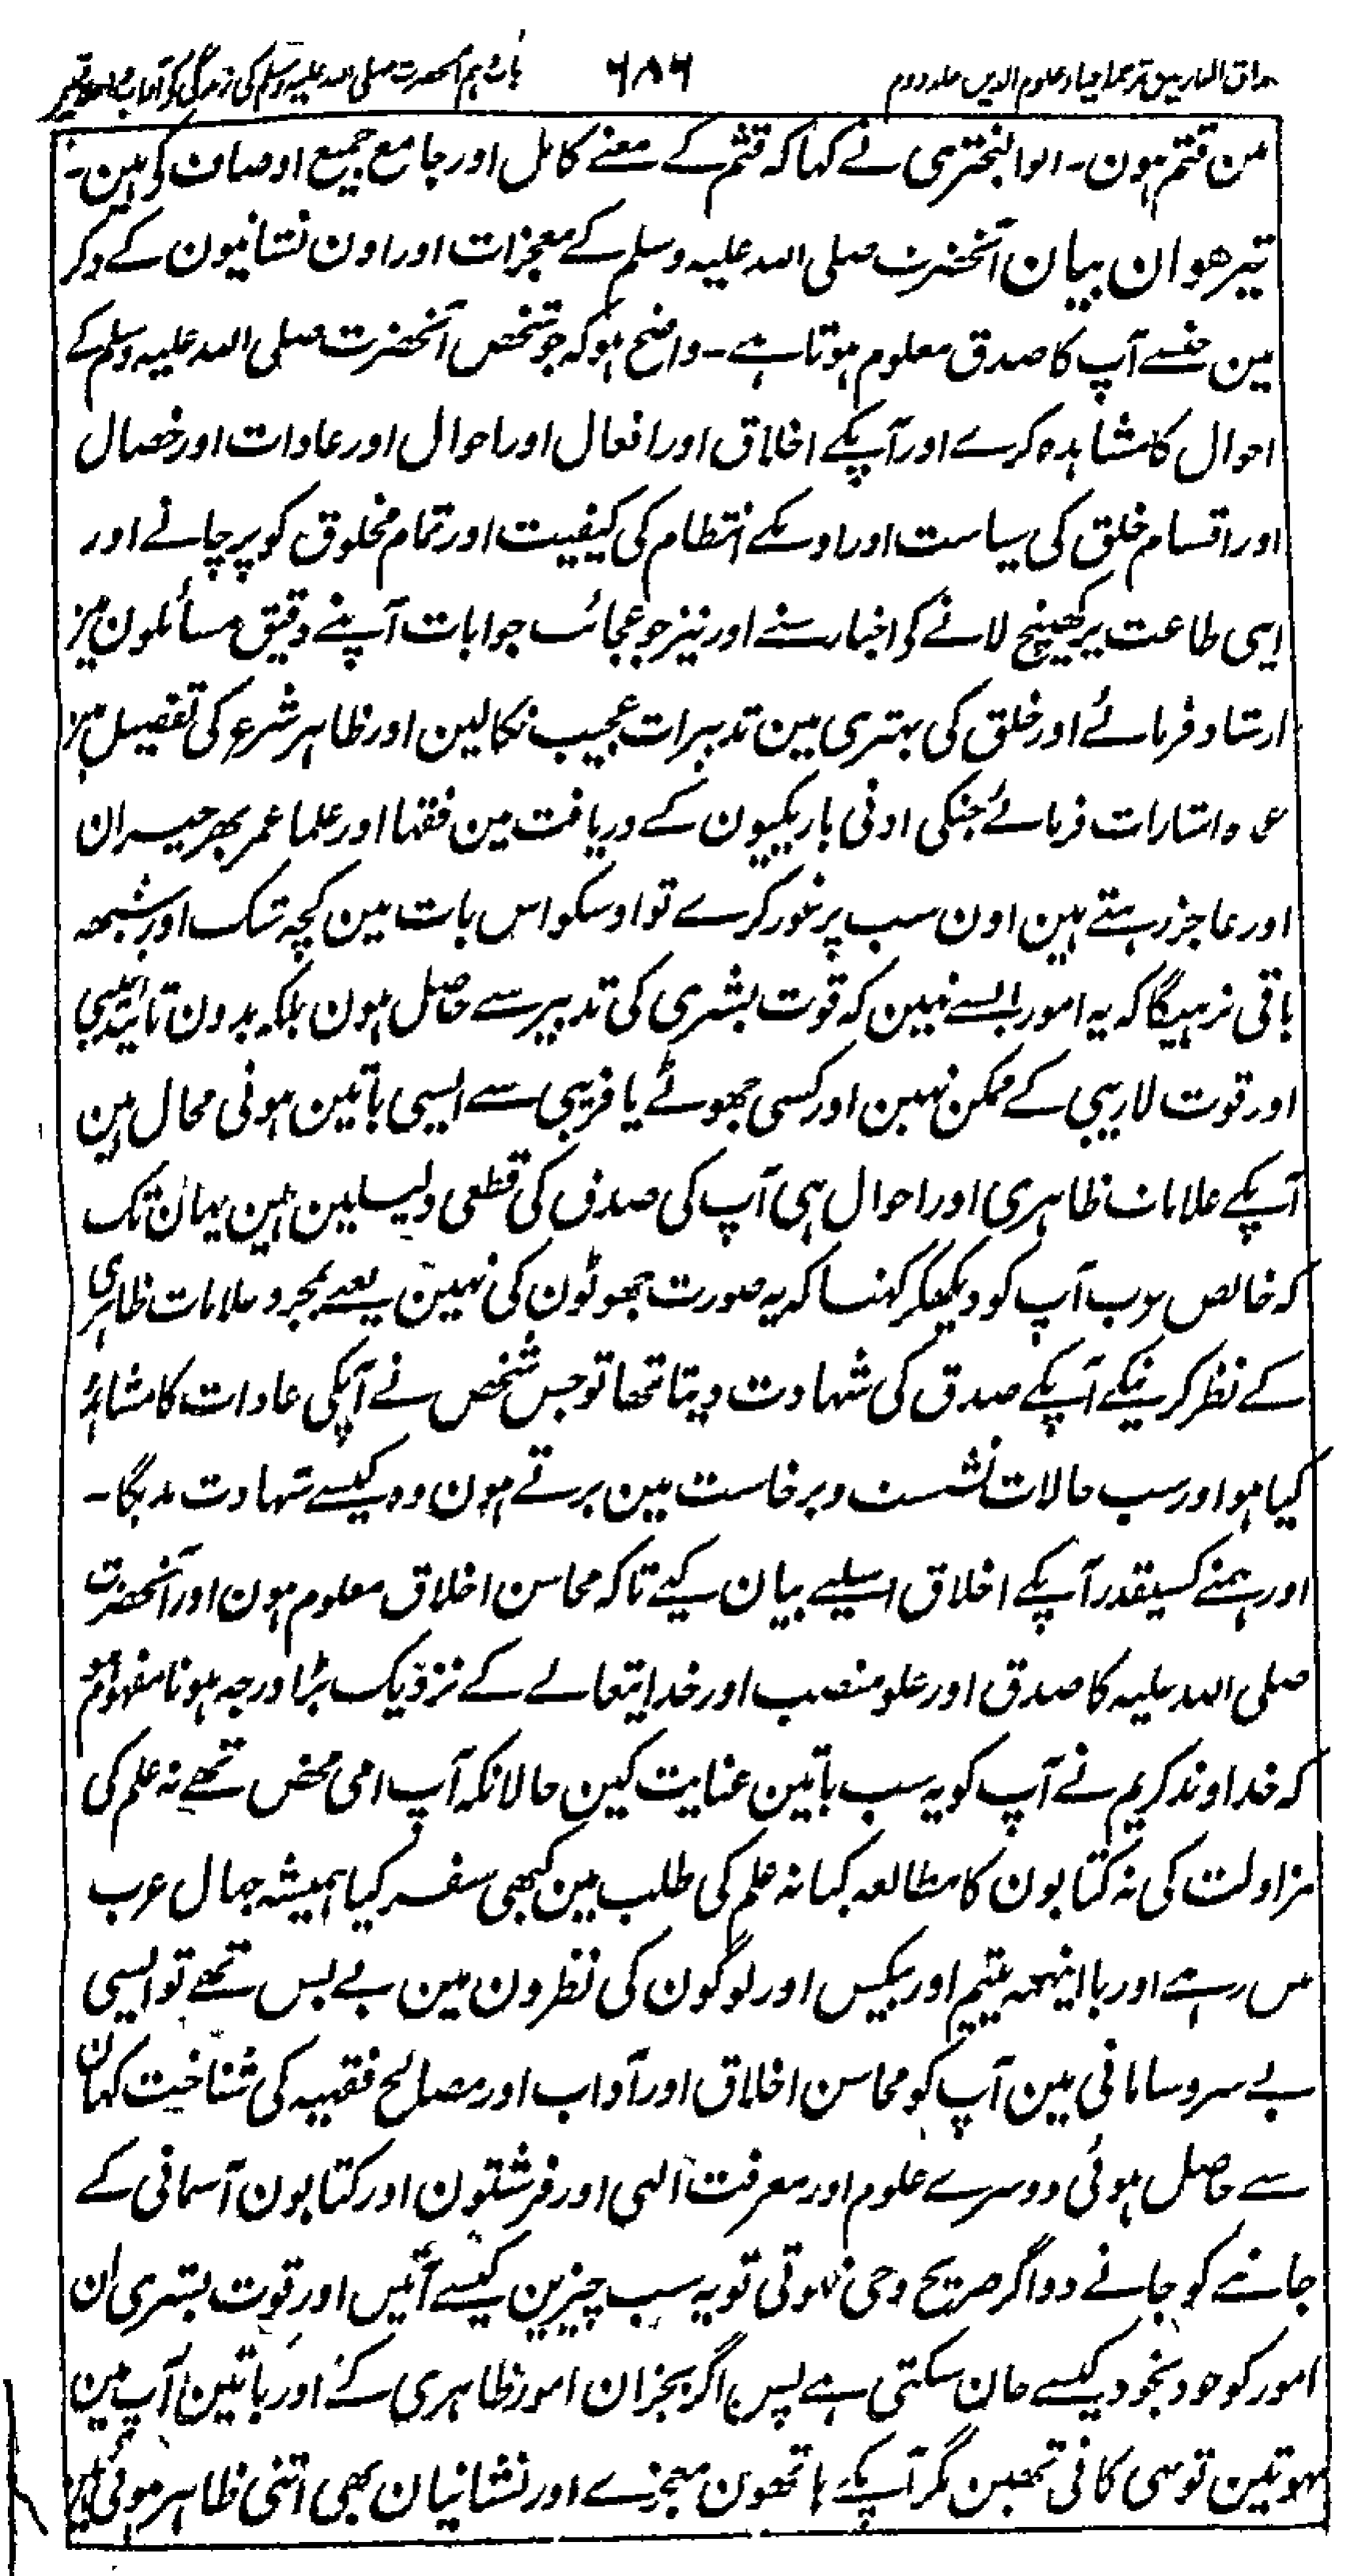 مذاق العارفین ترجمہ احیاء علوم الدین جلد دوم ۶۸۶ باب دہم آنحضرت صلی اللہ علیہ وسلم کی زندگی کے آداب
مین قثم ہون۔ ابوالبختری نے کہا کہ قثم کے معنے کامل اور جامع جمیع اوصاف کی ہین۔
تیرھوان بیان آنحضرت صلی اللہ علیہ وسلم کے معجزات اور اون نشانیون کے ذکر
مین جنسے آپ کا صدق معلوم ہوتا ہے۔ واضح ہو کہ جو شخص آنحضرت صلی اللہ علیہ وسلم کے
احوال کا مشاہدہ کرے اور آپکے اخلاق اور افعال اور احوال اور عادات اور خصال
اور اقسام خلق کی سیاست اور اونکے انتظام کی کیفیت اور تمام مخلوق کو پرچانے اور
اپنی طاعت پر کھینچ لانے کو اخبار سنے اور نیز جو عجائب جوابات آپنے دقیق مسائلون مین
ارشاد فرمائے اور خلق کی بہتری مین تدبیرات عجیب نکالین اور ظاہر شرع کی تفصیل مین
عمدہ اشارات فرمائے جنکی ادنی باریکیون کے دریافت مین فقہا اور علما عمر بھر حیران
اور عاجز رہتے ہین اون سب پر غور کرے تو اوسکو اس بات مین کچھ شک اور شبھہ
باقی نرہیگا کہ یہ امور ایسے نہین کہ قوت بشری کی تدبیر سے حاصل ہون بلکہ بدون تائید غیبی
اور قوت لاریبی کے ممکن نہین اور کسی جھوٹے یا فریبی سے ایسی باتین ہونی محال ہین
آپکے علامات ظاہری اور احوال ہی آپ کی صدق کی قطعی دلیلین ہین یہان تک
کہ خالص عرب آپ کو دیکھکر کہتا کہ یہ صورت جھوٹون کی نہین یعنے بمجرد علامات ظاہری
کے نظر کرنیکے آپکے صدق کی شہادت دیتا تھا تو جس شخص نے آپکی عادات کا مشاہدہ
کیا ہو اور سب حالات نشست و برخاست مین برتے ہون وہ کیسے شہادت ندیگا۔
اور ہمنے کسیقدر آپکے اخلاق اسلیے بیان کیے تاکہ محاسن اخلاق معلوم ہون اور آنحضرت
صلی اللہ علیہ کا صدق اور علو منصب اور خدایتعالے کے نزدیک بڑا درجہ ہونا مفہوم ہو
کہ خداوند کریم نے آپ کو یہ سب باتین عنایت کین حالانکہ آپ امی محض تھے نہ علم کی
مزاولت کی نہ کتابون کا مطالعہ کیا نہ علم کی طلب مین کبھی سفر کیا ہمیشہ جہال عرب
مین رہے اور با اینہمہ یتیم اور بیکس اور لوگون کی نظرون مین بے بس تھے تو ایسی
بے سروسامانی مین آپ کو محاسن اخلاق اور آداب اور مصالح فقہیہ کی شناخت کہان
سے حاصل ہوئی دوسرے علوم اور معرفت الہی اور فرشتون اور کتابون آسمانی کے
جاننے کو جانے دو اگر صریح وحی نہوتی تو یہ سب چیزین کیسے آتیں اور قوت بشری ان
امور کو خود بخود کیسے جان سکتی ہے پس اگر بجز ان امور ظاہری کے اور باتین آپ مین
نہوتین تو یہی کافی تھین مگر آپکے ہاتھون معجزے اور نشانیان بھی اتنی ظاہر ہوئی ہین